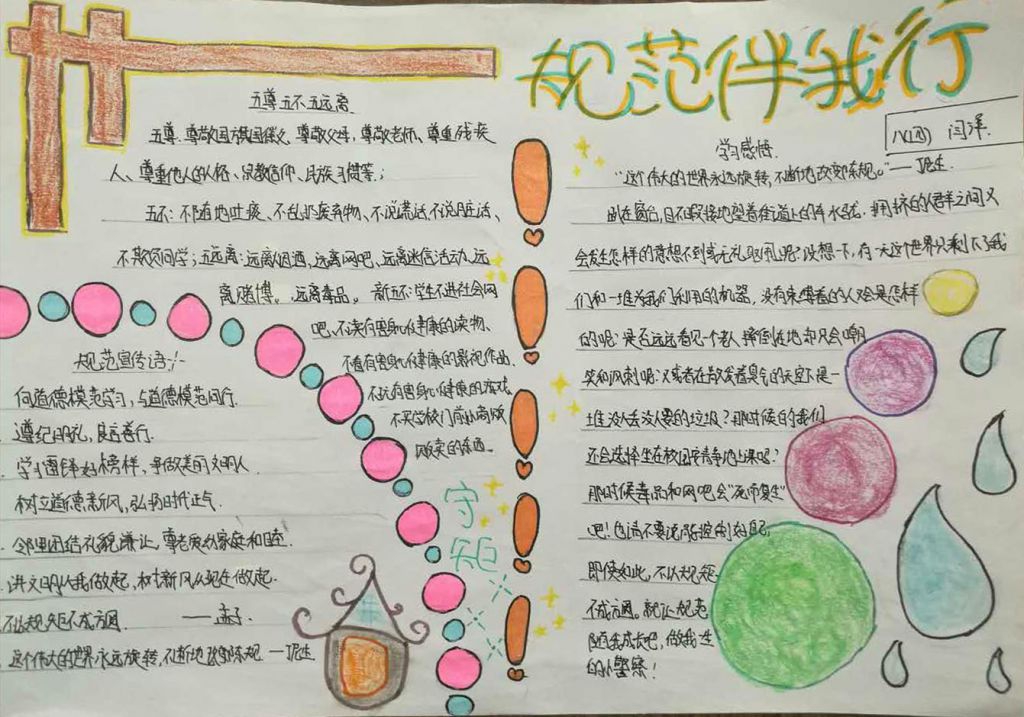 规范伴我行
八(四) 闫洋.
五尊五不五远离
五尊:尊敬国旗国徽义,尊敬父母,尊敬老师、尊重残疾
人、尊重他人的人格、宗教信仰、民族习惯等;
五不:不随地吐痰、不乱扔废弃物、不说谎话不说脏话、
不欺负同学;五远离:远离烟酒、远离网吧、远离迷信活动、远
离赌博。、远离毒品。 新五不:学生不进社会网
吧、不读有害身心健康的读物、
不看有害身心健康的影视作品、
不玩有害身心健康的游戏
不买学校门前小商贩
贩卖的东西。
规范宣传语:
向道德模范学习,与道德模范同行.
遵纪明礼,良言善行.
学习雷锋好榜样,争做美丽文明人.
树立道德新风,弘扬时代正气.
邻里团结礼貌谦让,尊老爱幼家庭和睦.
讲文明从我做起,树新风从现在做起.
不以规矩不成方圆. ——孟子.
这个伟大的世界永远旋转,不断地改变陈规.—丁尼生.
守
矩
学习感悟.
"这个伟大的世界永远旋转,不断地改变陈规。"—丁尼生.
趴在窗台,目不暇接地望着街道上的车水马龙.拥挤的人群之间又
会发生怎样的意想不到或无礼取闹呢?设想一下,有一天这个世界只剩下了我
们和一堆为我们利用的机器,没有束缚着的人又会是怎样
的呢?是否远远看见一个老人摔倒在地却只会嘲
笑和讽刺呢?又或者在散发着臭气的天空下是一
堆没人去没人累的垃圾?那时候的我们
还会选择坐在校园安静地上课呢?
那时候毒品和网吧会"死而复生"
吧!也请不要说用控制好自己
即使如此,不以规矩
不成方圆。就让规范
随我成长吧,做我一生
的小警察!